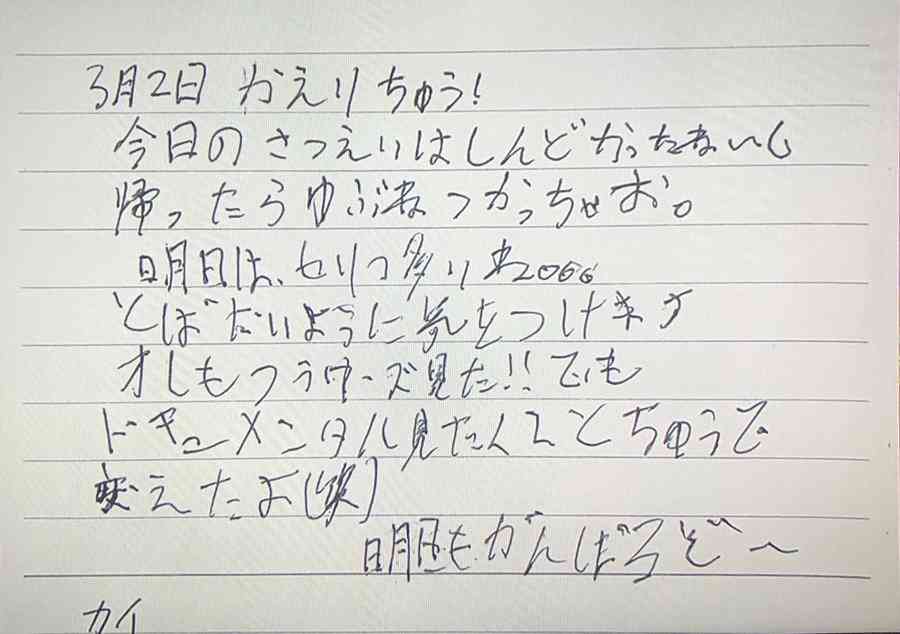 3月2日 かえりちゅう!
今日のさつえいはしんどかったない
帰ったらゆぶねつかっちゃお。
明日は、セリフ多い
とばないように気をつけます
オレもつうワーズ見た!!でも
ドキュメンタル見たくてとちゅうで
変えたよ(笑)
明日もがんばろぞ〜
カイ